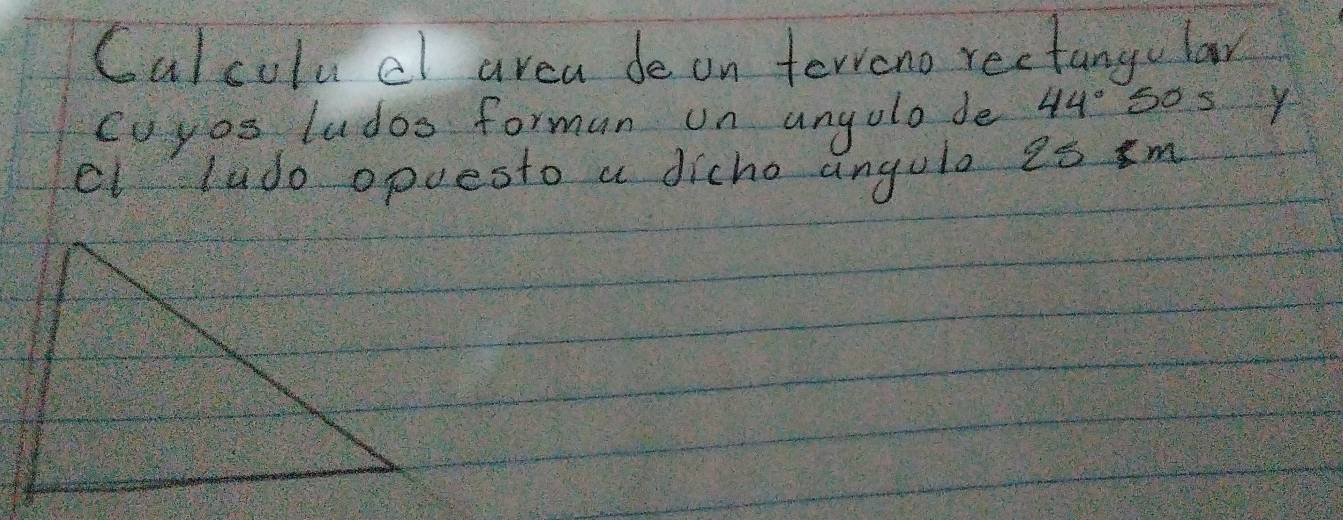 Calcula el area de un terreno rectangular
cuyos lados forman un angulo de 44° 50s y
el lado opuesto a dicho angulo 25 m